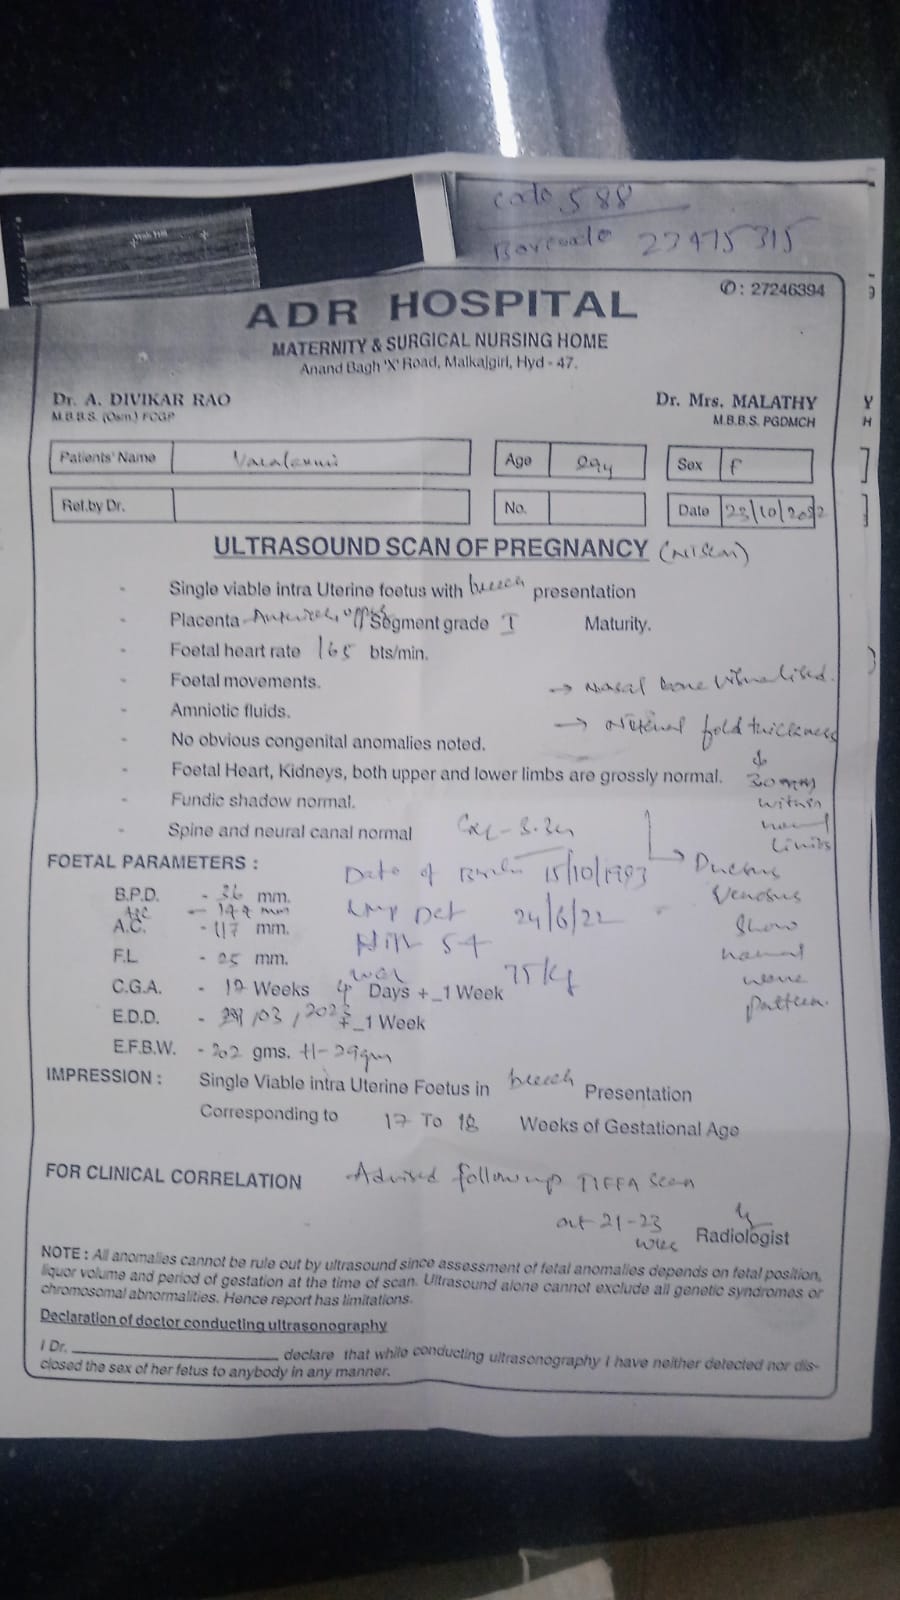 code 588
Barcode 23475315
✆: 27246394
ADR HOSPITAL
MATERNITY & SURGICAL NURSING HOME
Anand Bagh 'X' Road, Malkajgiri, Hyd - 47.
Dr. A. DIVIKAR RAO
M.B.B.S. (Osm) FCGP
Dr. Mrs. MALATHY
M.B.B.S. PGDMCH
Patients' Name Varalaxmi Age 29y Sex F
Ref.by Dr. No. Date 23/10/2022
ULTRASOUND SCAN OF PREGNANCY
- Single viable intra Uterine foetus with breech presentation
- Placenta Anterior Segment grade I Maturity.
- Foetal heart rate 165 bts/min.
- Foetal movements. → Nasal bone visualised.
- Amniotic fluids.
- No obvious congenital anomalies noted. → Nuchal fold thickness
- Foetal Heart, Kidneys, both upper and lower limbs are grossly normal.
within
normal
limits
- Fundic shadow normal.
- Spine and neural canal normal
FOETAL PARAMETERS :
Date of Birth 15/10/1993
Lmp Dat 24/6/22
Hight 5.4
75 kg
→ Ductus
Venosus
Show
normal
wave
pattern.
B.P.D. - 36 mm.
A.C. - 117 mm.
F.L - 25 mm.
C.G.A. - 17 Weeks 4 Days +_1 Week
E.D.D. - /03/2023 +_1 Week
E.F.B.W. - 202 gms. +1-29gm
IMPRESSION : Single Viable intra Uterine Foetus in breech Presentation
Corresponding to 17 To 18 Weeks of Gestational Age
FOR CLINICAL CORRELATION Advised followup TIFFA Scan
at 21-23
Radiologist
NOTE : All anomalies cannot be rule out by ultrasound since assessment of fetal anomalies depends on fetal position,
liquor volume and period of gestation at the time of scan. Ultrasound alone cannot exclude all genetic syndromes or
chromosomal abnormalities. Hence report has limitations.
Declaration of doctor conducting ultrasonography
I Dr. ____________________ declare that while conducting ultrasonography I have neither detected nor dis-
closed the sex of her fetus to anybody in any manner.